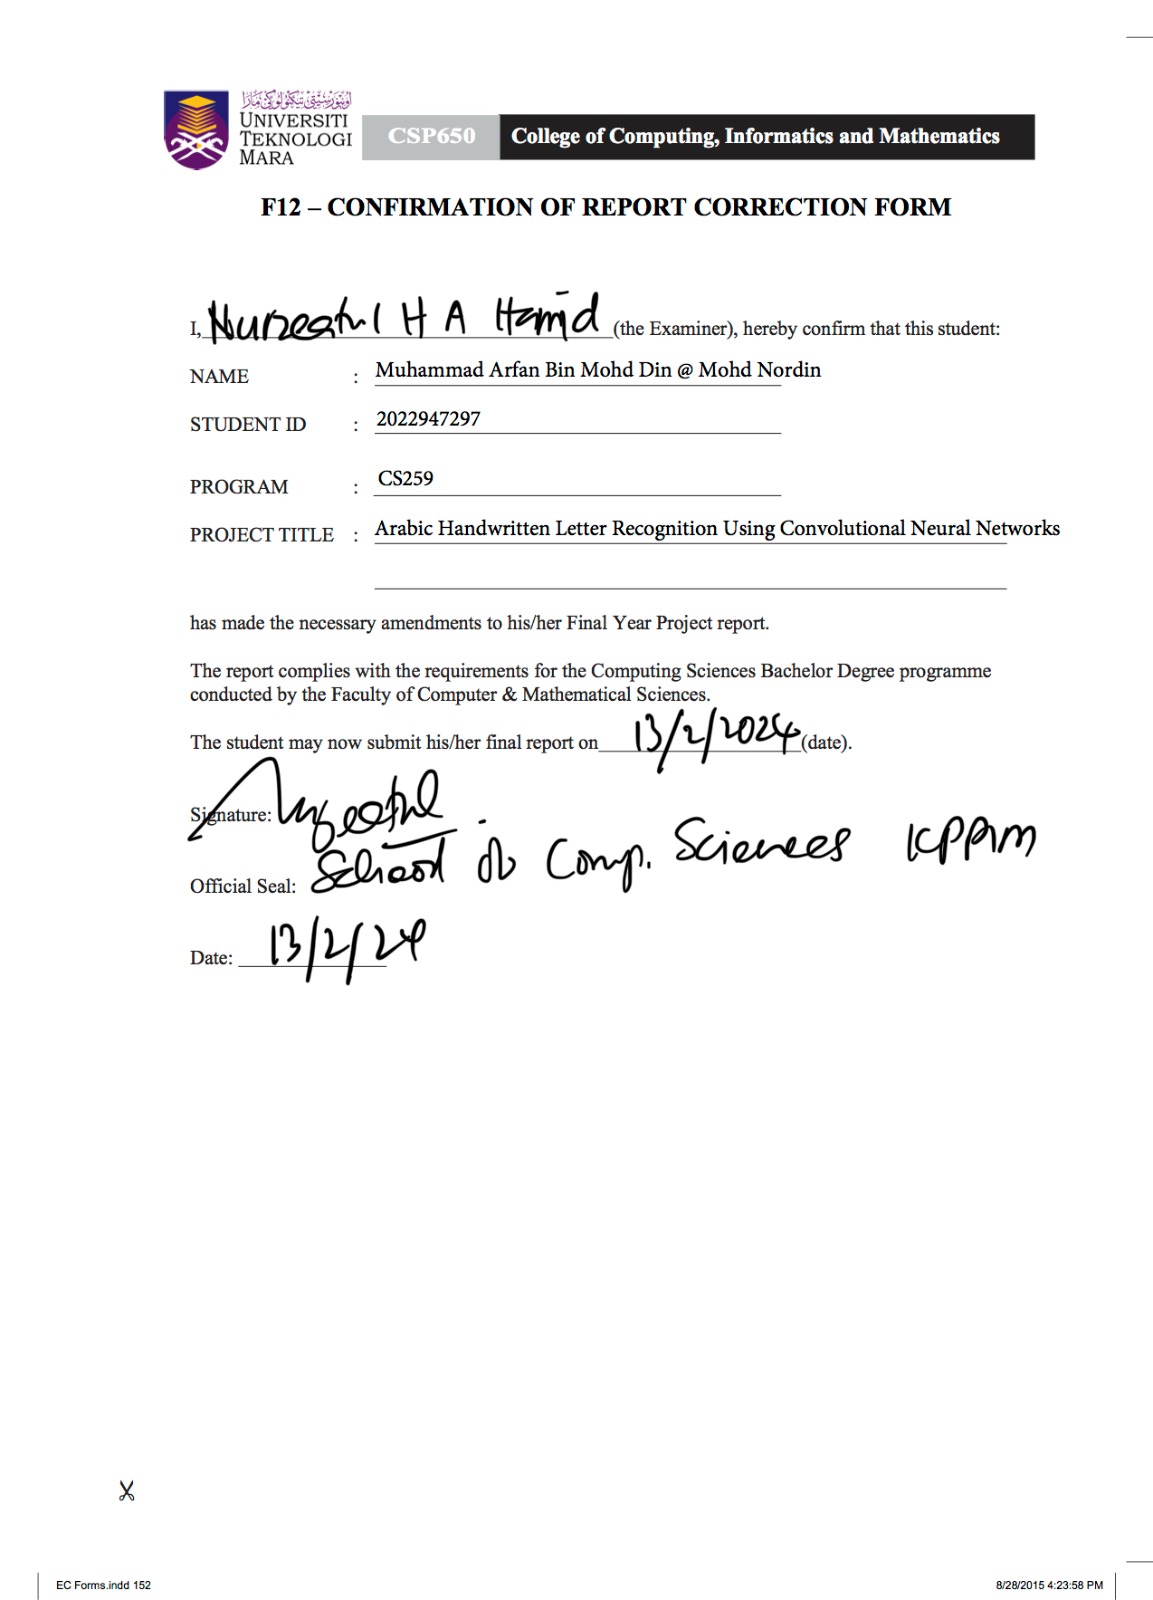 اونيۏرسيتي تيكنولوڬي مارا
UNIVERSITI
TEKNOLOGI
MARA
CSP650 College of Computing, Informatics and Mathematics
F12 – CONFIRMATION OF REPORT CORRECTION FORM
I, Nurzeatul H A Hamid (the Examiner), hereby confirm that this student:
NAME : Muhammad Arfan Bin Mohd Din @ Mohd Nordin
STUDENT ID : 2022947297
PROGRAM : CS259
PROJECT TITLE : Arabic Handwritten Letter Recognition Using Convolutional Neural Networks
has made the necessary amendments to his/her Final Year Project report.
The report complies with the requirements for the Computing Sciences Bachelor Degree programme
conducted by the Faculty of Computer & Mathematical Sciences.
The student may now submit his/her final report on 13/2/2024 (date).
Signature: Nurzeatul
Official Seal: School of Comp. Sciences KPPIM
Date: 13/2/24
EC Forms.indd 152 8/28/2015 4:23:58 PM